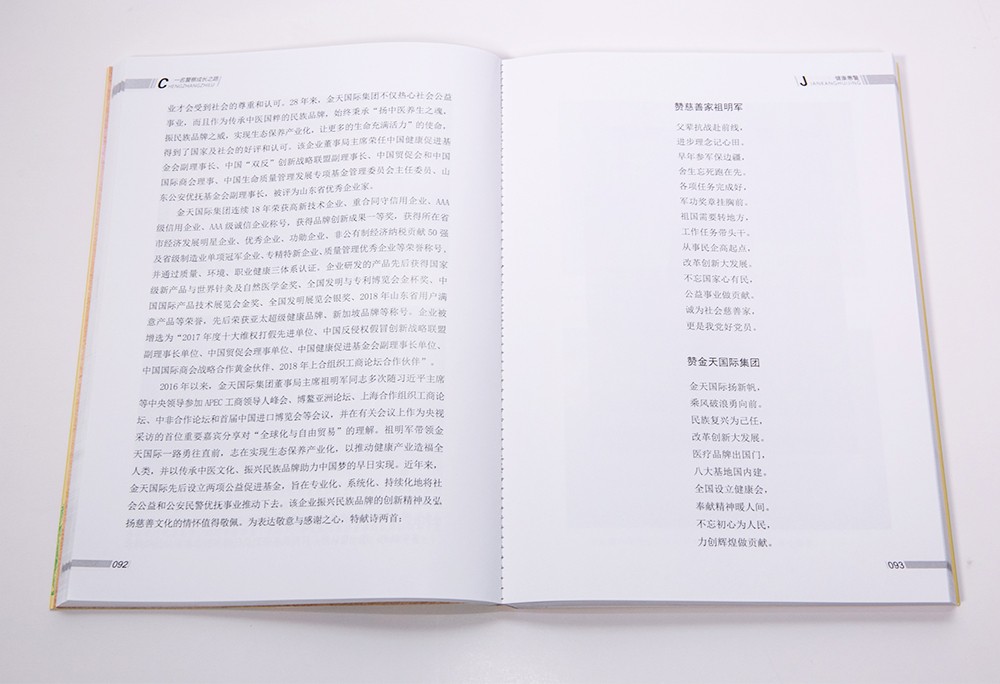 C 一名警察成长之路
业才会受到社会的尊重和认可。28 年来，金天国际集团不仅热心社会公益
事业，而且作为传承中医国粹的民族品牌，始终秉承“扬中医养生之魂，
振民族品牌之威，实现生态保养产业化，让更多的生命充满活力”的使命，
得到了国家及社会的好评和认可。该企业董事局主席荣任中国健康促进基
金会副理事长、中国“双反”创新战略联盟副理事长、中国贸促会和中国
国际商会理事、中国生命质量管理发展专项基金管理委员会主任委员、山
东公安优抚基金会副理事长，被评为山东省优秀企业家。
金天国际集团连续 18 年荣获高新技术企业、重合同守信用企业、AAA
级信用企业、AAA 级诚信企业称号，获得品牌创新成果一等奖，获得所在省
市经济发展明星企业、优秀企业、功勋企业、非公有制经济纳税贡献 50 强
及省级制造业单项冠军企业、专精特新企业、质量管理优秀企业等荣誉称号，
并通过质量、环境、职业健康三体系认证。企业研发的产品先后获得国家
级新产品与世界针灸及自然医学金奖、全国发明与专利博览会金杯奖、中
国国际产品技术展览会金奖、全国发明展览会银奖、2018 年山东省用户满
意产品等荣誉，先后荣获亚太超级健康品牌、新加坡品牌等称号。企业被
增选为“2017 年度十大维权打假先进单位、中国反侵权假冒创新战略联盟
副理事长单位、中国贸促会理事单位、中国健康促进基金会副理事长单位、
中国国际商会战略合作黄金伙伴、2018 年上合组织工商论坛合作伙伴”。
2016 年以来，金天国际集团董事局主席祖明军同志多次随习近平主席
等中央领导参加 APEC 工商领导人峰会、博鳌亚洲论坛、上海合作组织工商论
坛、中非合作论坛和首届中国进口博览会等会议，并在有关会议上作为央视
采访的首位重要嘉宾分享对“全球化与自由贸易”的理解。祖明军带领金
天国际一路勇往直前，志在实现生态保养产业化，以推动健康产业造福全
人类，并以传承中医文化、振兴民族品牌助力中国梦的早日实现。近年来，
金天国际先后设立两项公益促进基金，旨在专业化、系统化、持续化地将社
会公益和公安民警优抚事业推动下去。该企业振兴民族品牌的创新精神及弘
扬慈善文化的情怀值得敬佩。为表达敬意与感谢之心，特献诗两首：
092
J
赞慈善家祖明军
父辈抗战赴前线，
进步理念记心田。
早年参军保边疆，
舍生忘死跑在先。
各项任务完成好，
军功奖章挂胸前。
祖国需要转地方，
工作任务带头干。
从事民企高起点，
改革创新大发展。
不忘国家心有民，
公益事业做贡献。
诚为社会慈善家，
更是我党好党员。
赞金天国际集团
金天国际扬新帆，
乘风破浪勇向前。
民族复兴为己任，
改革创新大发展。
医疗品牌出国门，
八大基地国内建。
全国设立健康会，
奉献精神暖人间。
不忘初心为人民，
力创辉煌做贡献。
093